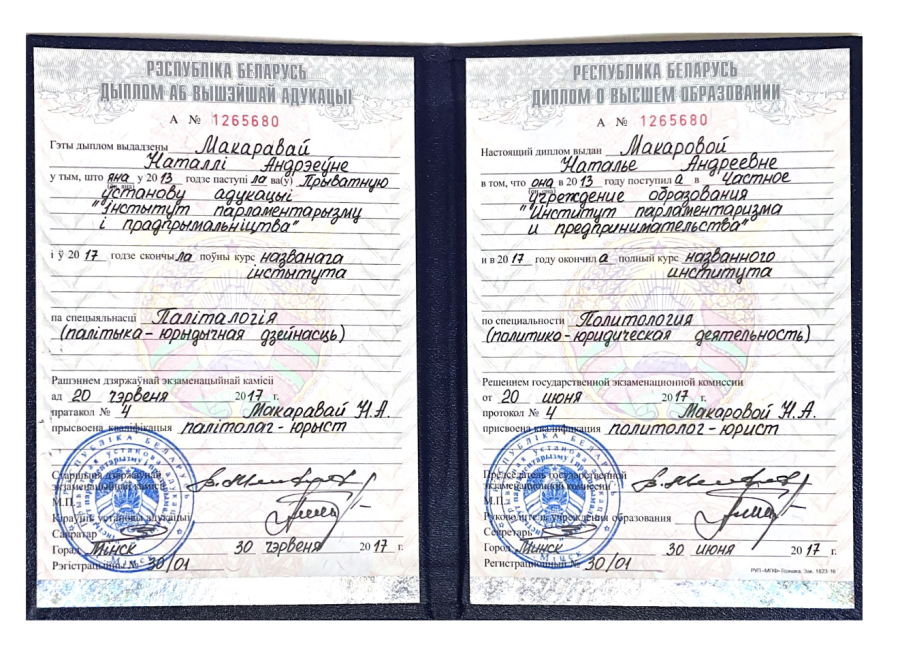 РЭСПУБЛІКА БЕЛАРУСЬ
ДЫПЛОМ АБ ВЫШЭЙШАЙ АДУКАЦЫІ
А № 1265680
Гэты дыплом выдадзены Макаравай
Наталлі Андрэеўне
у тым, што яна у 2013 годзе паступіла ва(ў) Прыватную
(ён, яна)
ўстанову адукацыі
"Інстытут парламентарызму
і прадпрымальніцтва"
і ў 2017 годзе скончыла поўны курс названага
інстытута
па спецыяльнасці Паліталогія
(палітыка-юрыдычная дзейнасць)
Рашэннем дзяржаўнай экзаменацыйнай камісіі
ад 20 чэрвеня 2017 г.
пратакол № 4 Макаравай Н.А.
прысвоена кваліфікацыя палітолаг-юрыст
Старшыня дзяржаўнай
экзаменацыйнай камісіі
М.П.
Кіраўнік установы адукацыі
Сакратар
Горад Мінск 30 чэрвеня 2017 г.
Рэгістрацыйны № 30/01
РЕСПУБЛИКА БЕЛАРУСЬ
ДИПЛОМ О ВЫСШЕМ ОБРАЗОВАНИИ
А № 1265680
Настоящий диплом выдан Макаровой
Наталье Андреевне
в том, что она в 2013 году поступила в Частное
(он, она)
учреждение образования
"Институт парламентаризма
и предпринимательства"
и в 2017 году окончила полный курс названного
института
по специальности Политология
(политико-юридическая деятельность)
Решением государственной экзаменационной комиссии
от 20 июня 2017 г.
протокол № 4 Макаровой Н.А.
присвоена квалификация политолог-юрист
Председатель государственной
экзаменационной комиссии
М.П.
Руководитель учреждения образования
Секретарь
Город Минск 30 июня 2017 г.
Регистрационный № 30/01
РУП «МПФ» Гознака. Зак. 1823-16